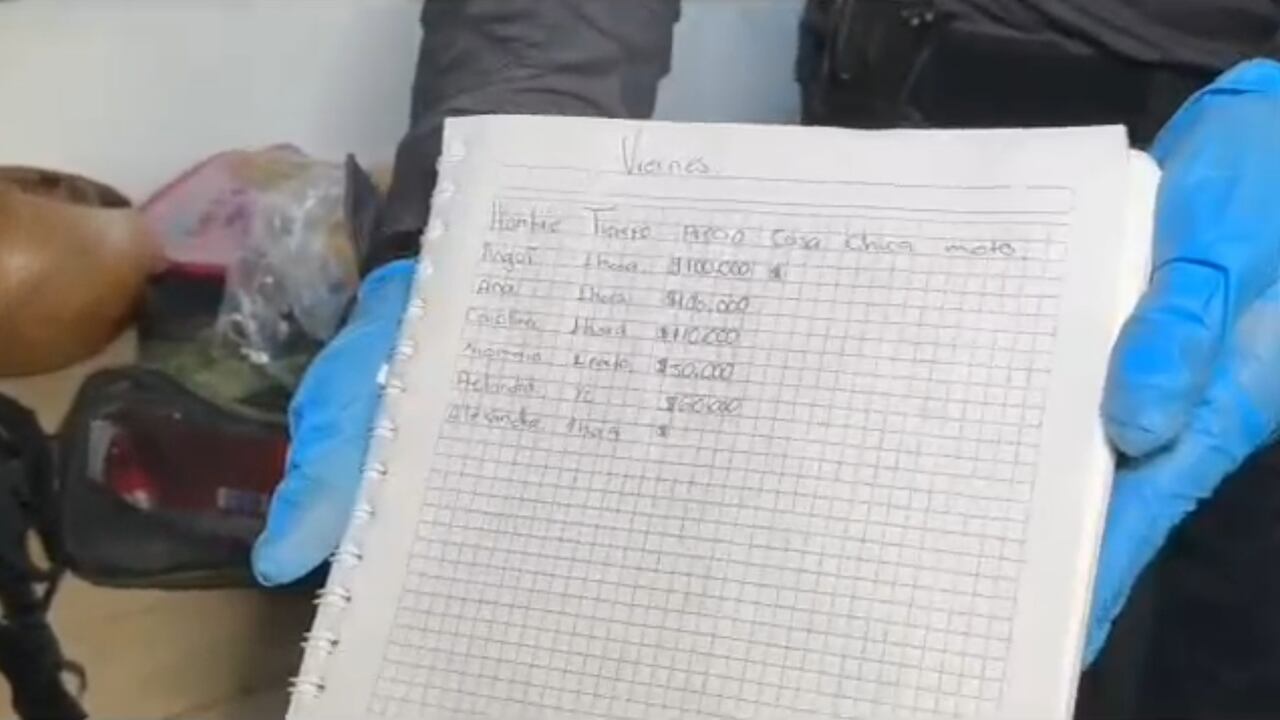 Viernes.
Nombre Tiempo Precio Casa Chica moto.
Angel 1 hora $100.000
Ana 1 hora $100.000
Carolina 1 hora $110.000
1 rato $50.000
1/2 $60.000
Alexandra 1 hora $